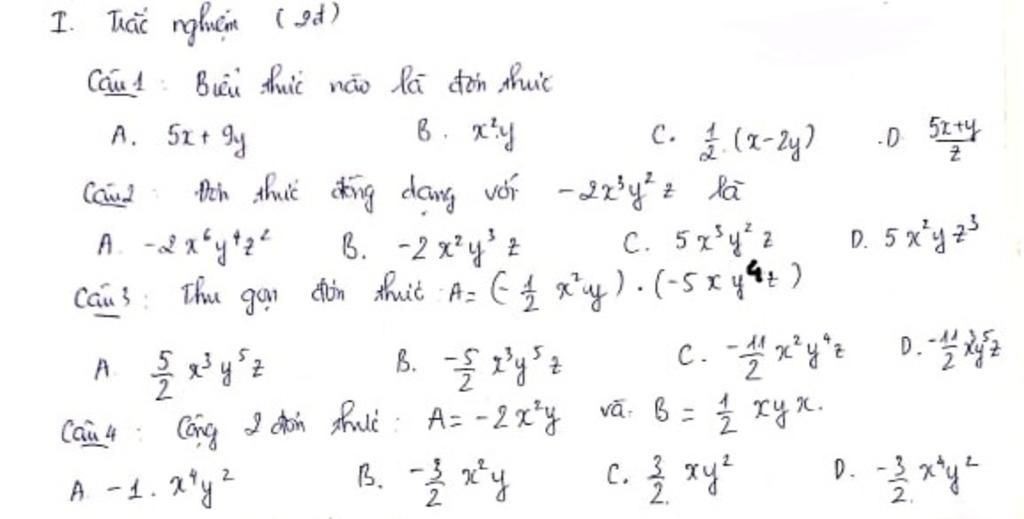 I. Trắc nghiệm (2đ)
Câu 1: Biểu thức nào là đơn thức
A. 5x + 9y B. x².y C. 1/2.(x-2y) .D. (5x+y)/z
Câu 2: Đơn thức đồng dạng với -2x³y²z là
A. -2x⁶y⁴z² B. -2x²y³z C. 5x³y²z D. 5x²yz³
Câu 3: Thu gọn đơn thức: A = (-1/2 x²y).(-5xy⁴z)
A. 5/2 x³y⁵z B. -5/2 x³y⁵z C. -11/2 x²y⁴z D. -11/2 x³y⁵z
Câu 4: Cộng 2 đơn thức: A = -2x²y và: B = 1/2 xyx.
A. -1.x⁴y² B. -3/2 x²y C. 3/2. xy² D. -3/2. x⁴y²